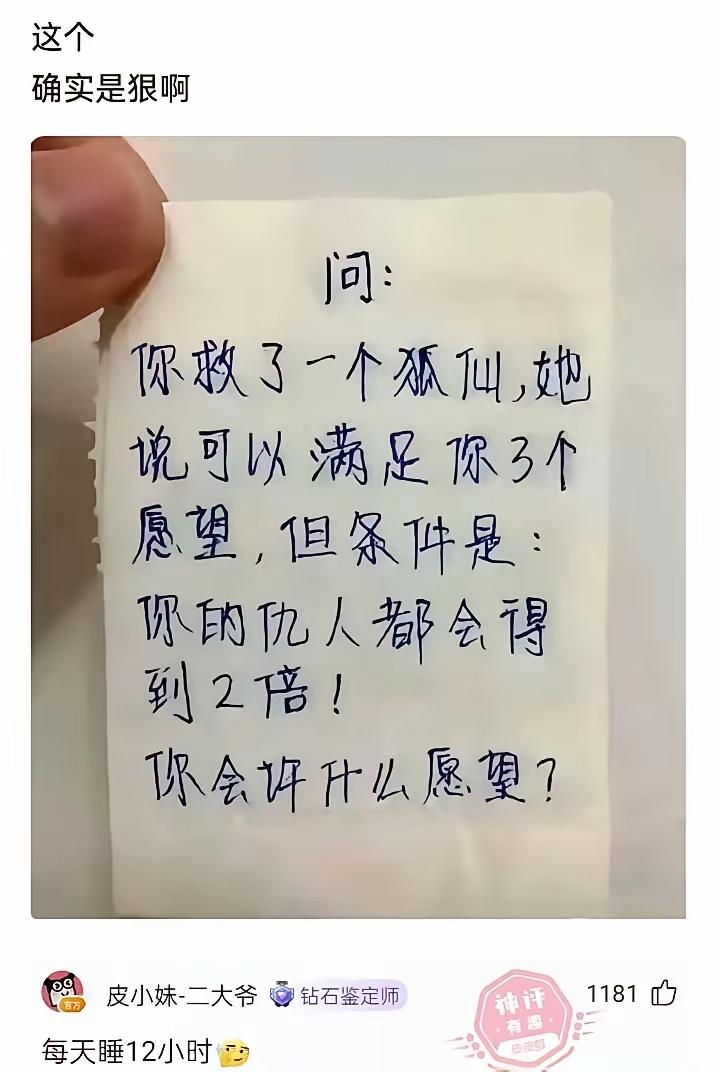 这个
确实是狠啊
问：
你救了一个狐仙,她
说可以满足你3个
愿望,但条件是：
你的仇人都会得
到2倍！
你会许什么愿望？
官方
皮小妹-二大爷 钻石鉴定师
神评
有趣
皮皮虾
1181
每天睡12小时